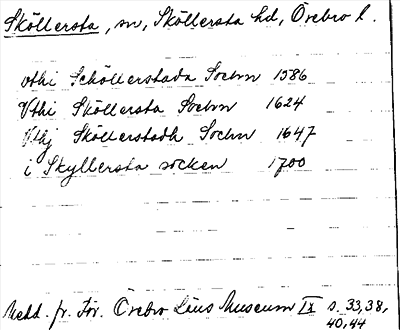 Sköllersta, sn, Sköllersta hd, Örebro l.
vthi Schöllerstada Sochn 1586
Vthi Sköllersta Sochn 1624
Vthj Sköllerstadh Sochn 1647
i Skyllersta socken 1700
Medd. fr. För. Örebro Läns Museum IX s. 33,38,
40,44